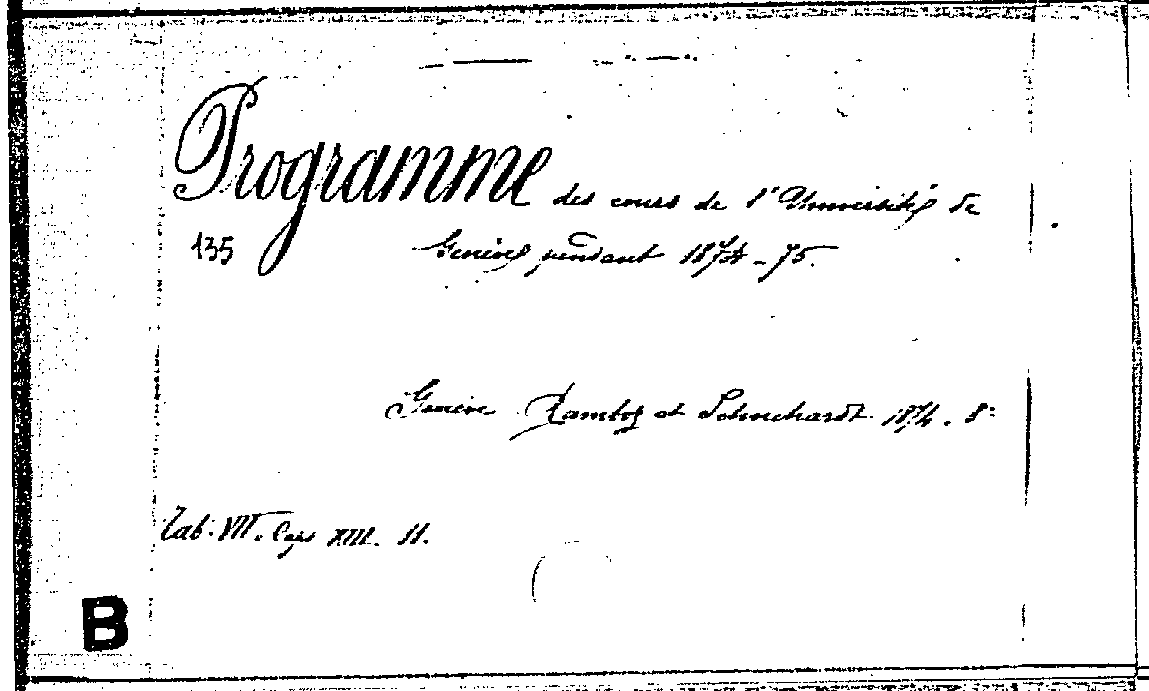 Programme des cours de l'Université de
135 Genève pendant 1874-75.
Genève Ramboz et Schuchardt. 1874. 8º
Tab. VII. Caps XIII. 11.
B